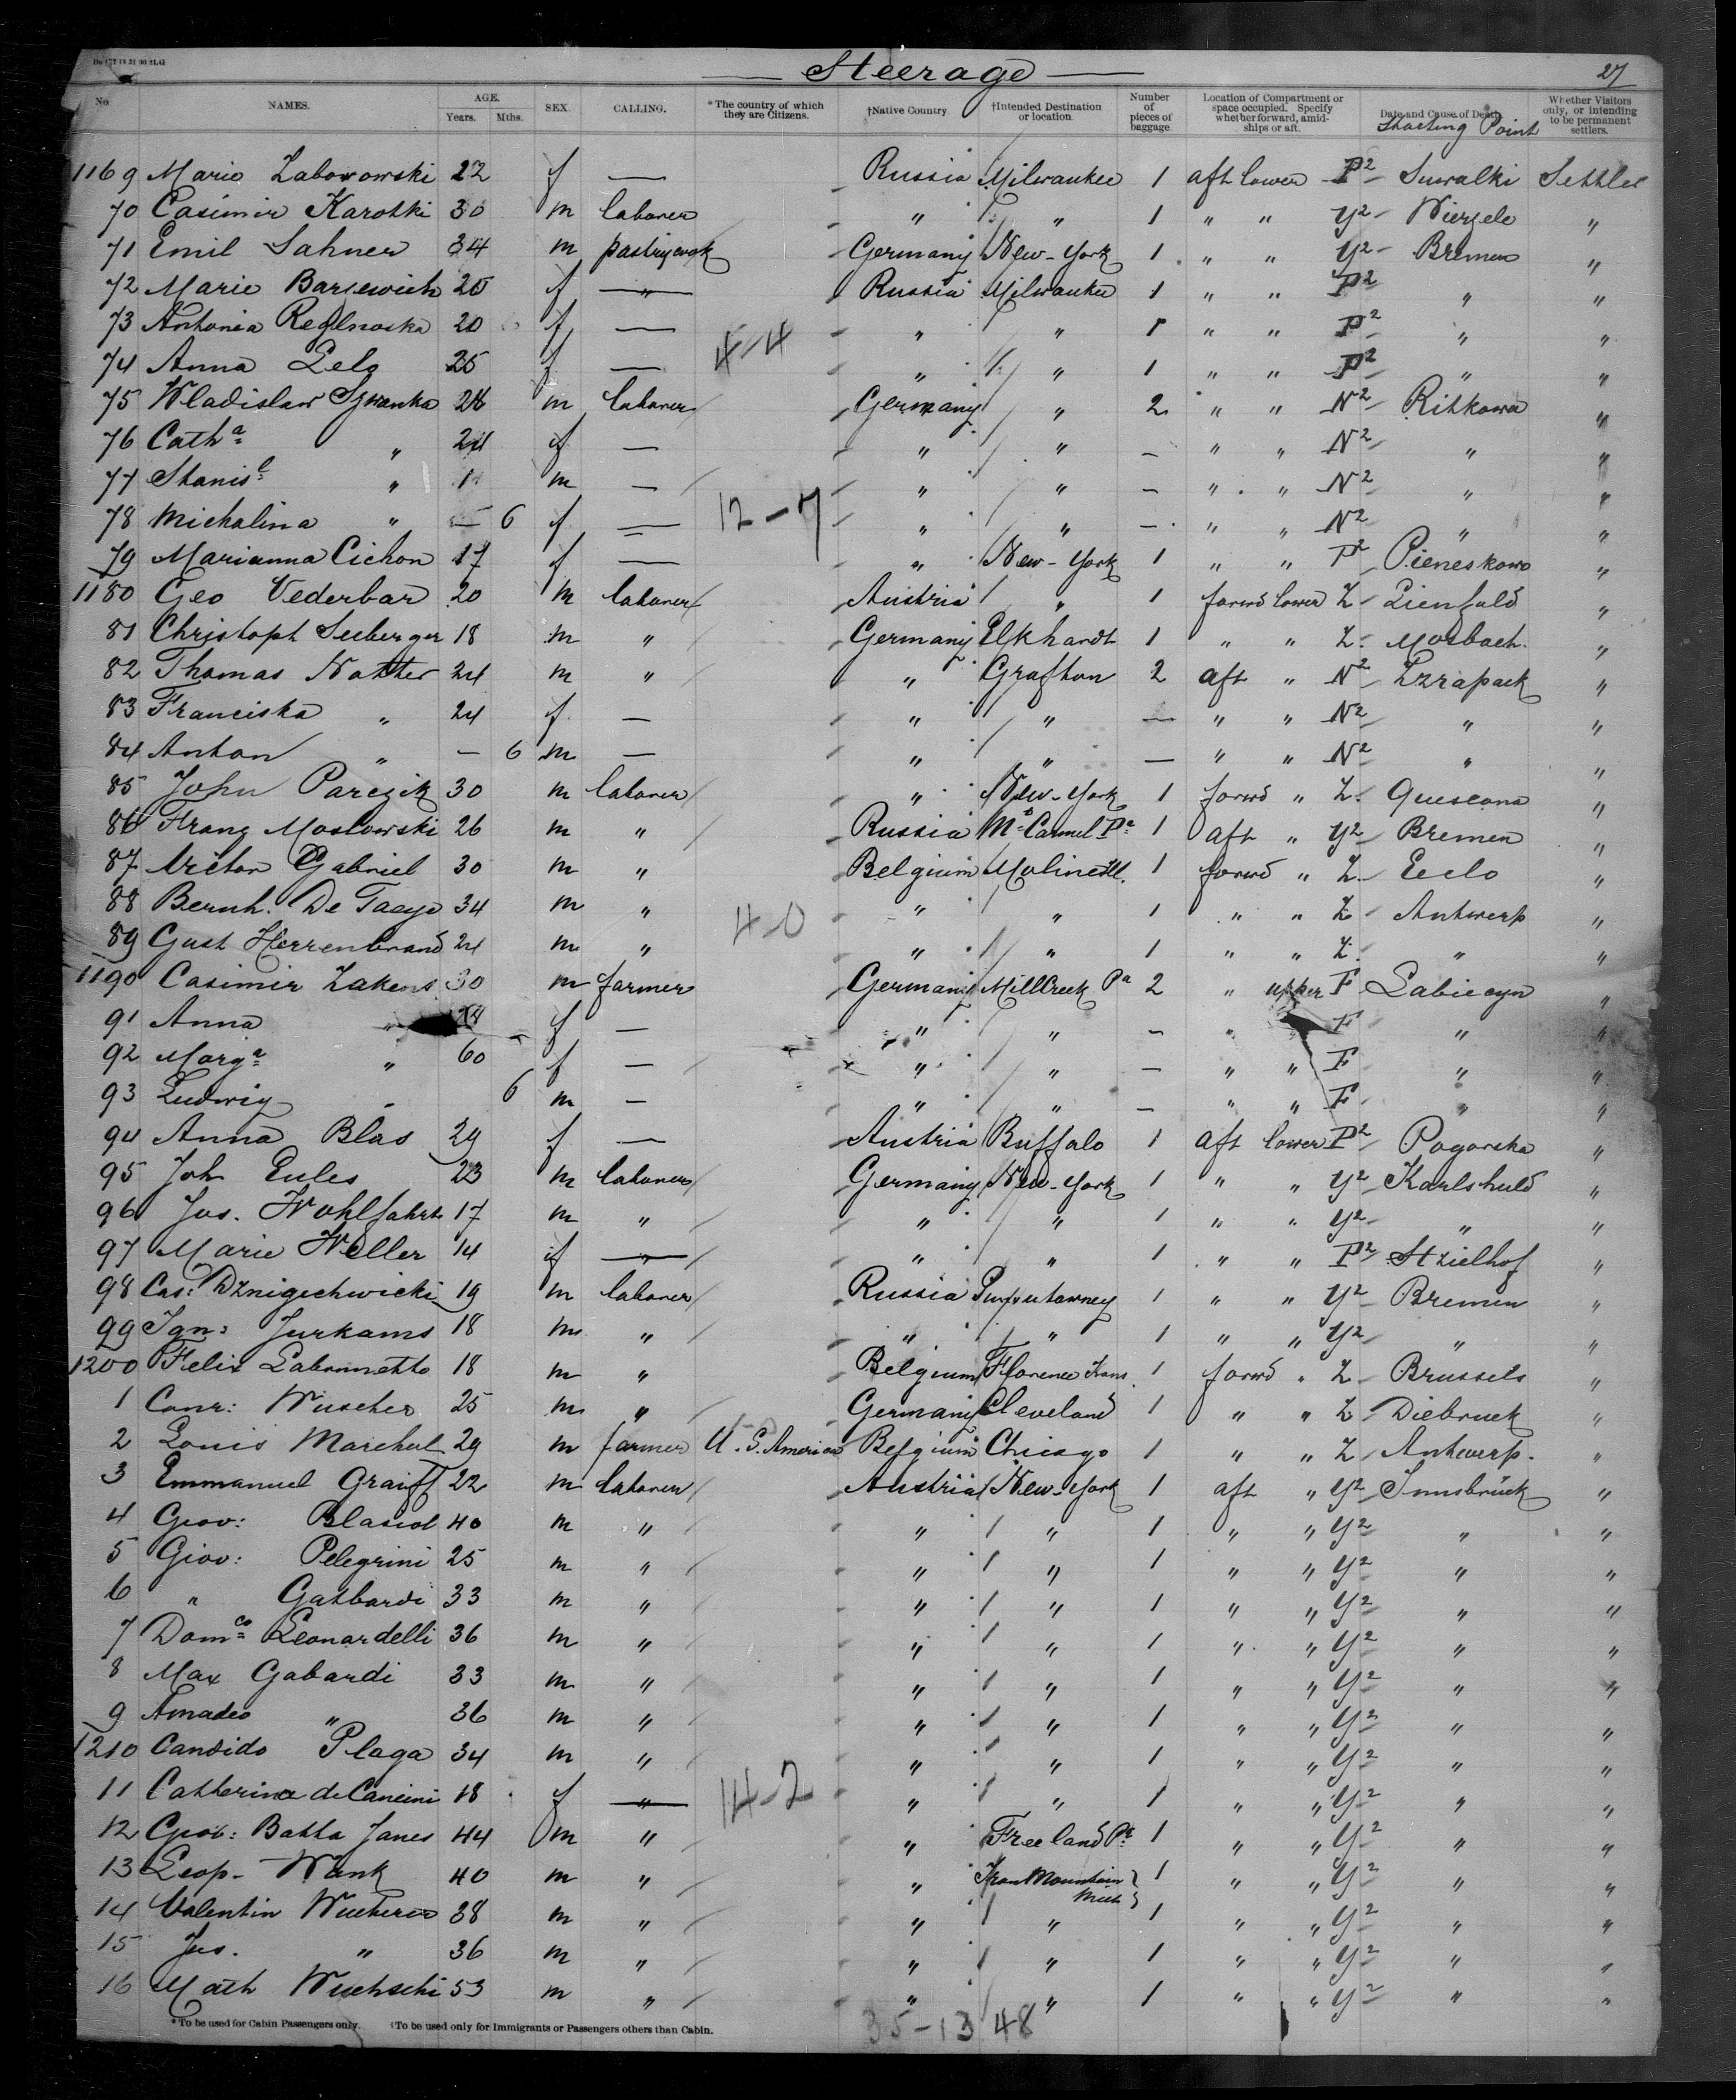 Steerage
27
No NAMES. AGE. Years. Mths. SEX. CALLING. *The country of which they are Citizens. †Native Country †Intended Destination or location. Number of pieces of baggage. Location of Compartment or space occupied. Specify whether forward, amidships or aft. Date and Cause of Death Whether Visitors only, or intending to be permanent settlers.
Starting Point
1169 Marie Labowowski 22 f — Russia Milwaukee 1 aft lower P2 Suwalki Settler
70 Casimir Karotki 30 m laborer " " 1 " " Y2 Wierzele "
71 Emil Sahner 34 m pastrycook Germany New-York 1 " " Y2 Bremen "
72 Marie Barsewich 20 f " Russia Milwaukee 1 " " P2 " "
73 Antonia 20 f — " " 1 " " P2 " "
4-4
74 Anna Lelo 25 f — " " 1 " " P2 " "
75 Wladislaw Szwanka 28 m laborer Germany " 2 " " N2 Ritkowa "
76 Catha " 24 f — " " — " " N2 " "
77 Stanisl " 1 m — " " — " " N2 " "
12-7
78 Michalina " — 6 f — " " — " " N2 " "
79 Marianna Cichon 17 f — " New-York 1 " " P2 Pieneskowo "
1180 Geo Vederbar 20 m laborer Austria " 1 forwd lower Z Lienfeld "
81 Christoph Seeberger 18 m " Germany Elkhardt 1 " " Z. Mosbach "
82 Thomas Natter 24 m " " Grafton 2 aft " N2 Zzrapack "
83 Franciska " 24 f — " " — " " N2 " "
84 Anton " — 6 m — " " — " " N2 " "
85 John Parczik 30 m laborer " New-York 1 forwd " Z. Queseona "
86 Franz Moslowski 26 m " Russia Mt Carmel Pa 1 aft " Y2 Bremen "
87 Victor Gabriel 30 m " Belgium Moline Ill. 1 forwd " Z. Eeclo "
88 Bernh. De Taeye 34 m " " " 1 " " Z Antwerp "
4-0
89 Gust Herrenbrand 24 m " " " 1 " " Z. " "
1190 Casimir Zakens 30 m farmer Germany Mill Creek Pa 2 " upper F Labiecyn "
91 Anna " 28 f — " " — " " F " "
92 Marga " 60 f — " " — " " F " "
93 Ludwig " 6 m — " " — " " F " "
94 Anna Blas 29 f — Austria Buffalo 1 aft lower P2 Pogorska "
95 Joh Eules 23 m laborer Germany New-York 1 " " Y2 Karlshuld "
96 Jos. Wohlfahrt 17 m " " " 1 " " Y2 " "
97 Marie Weller 14 f " " " 1 " " P2 Stzielhof "
98 Cas: Dznigechwicki 19 m laborer Russia Punxutawney 1 " " Y2 Bremen "
99 Ign: Jurkams 18 m " " " 1 " " Y2 " "
1200 Felix 18 m " Belgium Florence Kans. 1 forwd " Z Brussels "
1 Conr: Wuscher 25 m " Germany Cleveland 1 " " Z Diebruck "
2 Louis Marchal 29 m farmer U.S. America Belgium Chicago 1 " " Z Antwerp. "
3 Emmanuel Graiff 22 m laborer Austria New-York 1 aft " Y2 Innsbrück "
4 Giov: Blasiol 40 m " " " 1 " " Y2 " "
5 Giov: Pelegrini 25 m " " " 1 " " Y2 " "
6 " Gasbardi 33 m " " " 1 " " Y2 " "
7 Domco Leonardelli 36 m " " " 1 " " Y2 " "
8 Max Gabardi 33 m " " " 1 " " Y2 " "
9 Amadeo " 36 m " " " 1 " " Y2 " "
1210 Candido Plaga 34 m " " " 1 " " Y2 " "
14-2
11 Catterina de Cancini 18 f " " " 1 " " Y2 " "
12 Giov: Batta Janes 44 m " " Freeland Pa 1 " " Y2 " "
13 Leop- Wank 40 m " " Iron Mountain Mich 1 " " Y2 " "
14 Valentin Wucherer 38 m " " " 1 " " Y2 " "
15 Jos. " 36 m " " " 1 " " Y2 " "
16 Math Wuchschi 53 m " " " 1 " " Y2 " "
*To be used for Cabin Passengers only. †To be used only for Immigrants or Passengers others than Cabin.
35-13 48